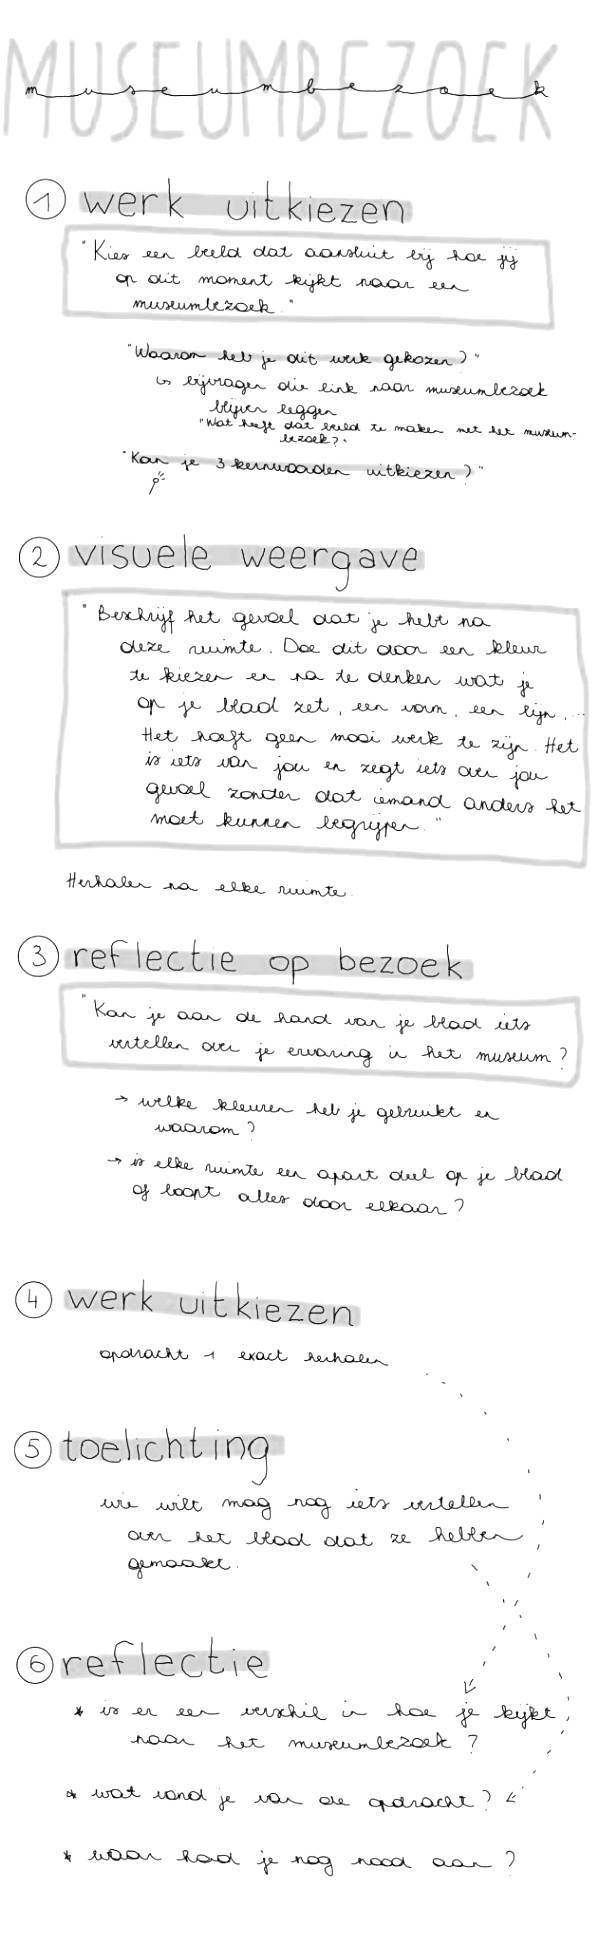 MUSEUMBEZOEK
museumbezoek
1 werk uitkiezen
"Kies een beeld dat aansluit bij hoe jij
op dit moment kijkt naar een
museumbezoek."
"Waarom heb je dit werk gekozen?"
↳ bijvragen die link naar museumbezoek
blijven leggen
"Wat heeft dat beeld te maken met het museum-
bezoek?"
"Kan je 3 kernwoorden uitkiezen?"
2 visuele weergave
"Beschrijf het gevoel dat je hebt na
deze ruimte. Doe dit door een kleur
te kiezen en na te denken wat je
op je blad zet, een vorm, een lijn, ...
Het hoeft geen mooi werk te zijn. Het
is iets van jou en zegt iets over jou
gevoel zonder dat iemand anders het
moet kunnen begrijpen."
Herhalen na elke ruimte.
3 reflectie op bezoek
"Kan je aan de hand van je blad iets
vertellen over je ervaring in het museum?
→ welke kleuren heb je gebruikt en
waarom?
→ is elke ruimte een apart deel op je blad
of loopt alles door elkaar?
4 werk uitkiezen
opdracht 1 exact herhalen
5 toelichting
wie wilt mag nog iets vertellen
over het blad dat ze hebben
gemaakt.
6 reflectie
* is er een verschil in hoe je kijkt
naar het museumbezoek?
* wat vond je van de opdracht?
* waar had je nog nood aan?